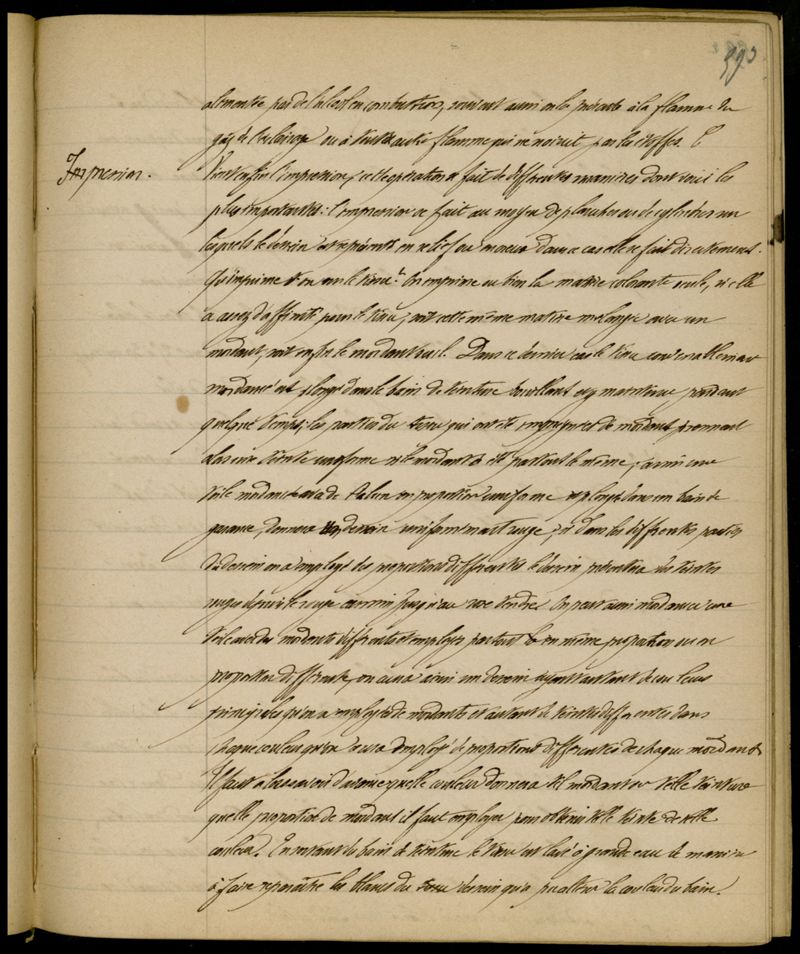 393
alimentée par de l'alcool en combustion, souvent aussi on les présente à la flamme du
gaz de l'éclairage ou à toute autre flamme qui ne noircit pas les étoffes.
Impression.
Vient enfin l'impression ; cette opération se fait de différentes manières dont voici les
plus importantes : l'impression se fait au moyen de planches ou de cylindres sur
lesquels le dessin est représenté en relief ou en creux dans ce cas elle se fait directement.
On imprime ou bien la matière colorante seule, si elle
a assez d'affinité pour le tissu, soit cette même matière mélangée avec un
mordant, soit enfin le mordant seul. Dans ce dernier cas le tissu convenablement
mordancé est plongé dans le bain de teinture bouillant et y maintenu pendant
quelque temps ; les parties du tissu qui ont été imprégnées de mordant prennent
alors une teinte uniforme si le mordant est partout le même, ainsi une
toile mordancée en proportion uniforme et plongée dans un bain de
garance, donnera un dessin uniformément rouge ; si dans les différentes parties
du dessin on a employé des proportions différentes le dessin présentera des teintes
rouges depuis le rouge carmin jusqu'au rose tendre. On peut aussi mordancer une
toile avec des mordants différents et employés partout en même proportion ou en
proportion différente, on aura ainsi un dessin ayant autant de couleurs
principales qu'on a employé de mordants et autant de teintes différentes dans
chaque couleur qu'on aura employé de proportions différentes de chaque mordant
Il faut alors savoir d'avance quelle couleur donnera tel mordant sur telle teinture
quelle proportion de mordant il faut employer pour obtenir telle teinte de telle
couleur. En sortant du bain de teinture le tissu est lavé à grande eau de manière
à faire reparaître les blancs du dessin qu'a pu altérer la couleur du bain.